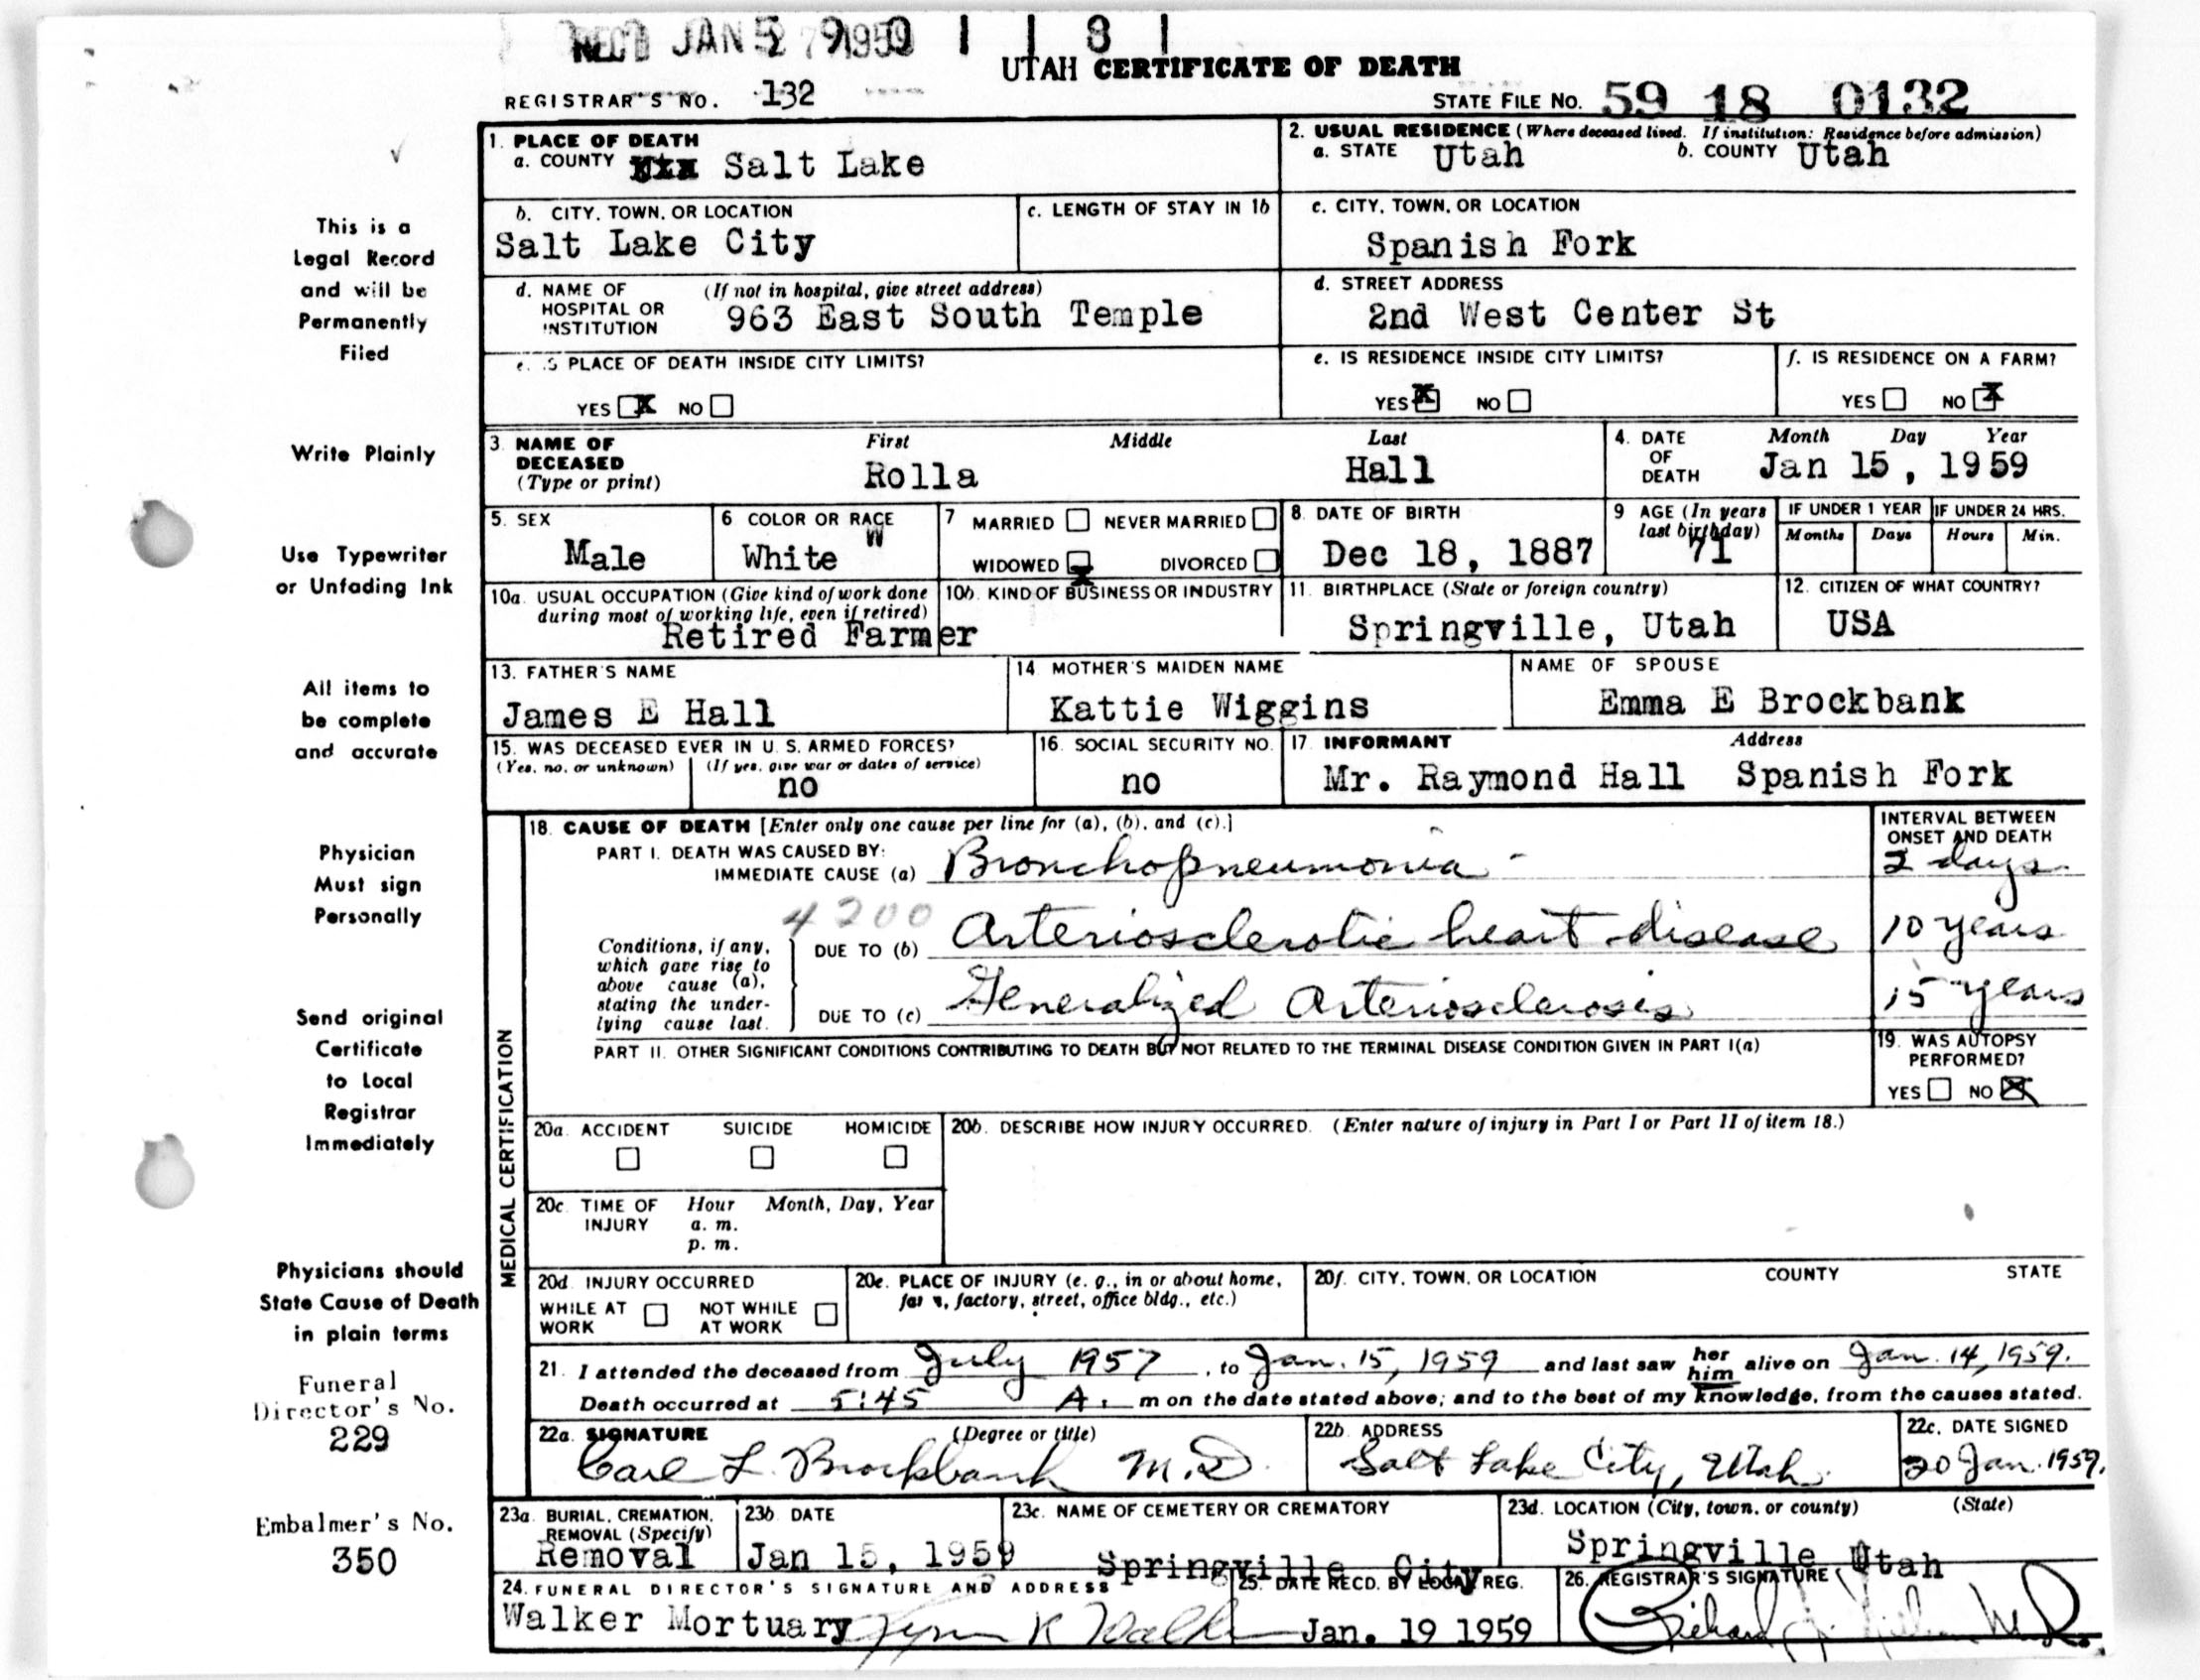 REC'D JAN 1959 1 1 8 1
UTAH CERTIFICATE OF DEATH
REGISTRAR'S NO. 132
STATE FILE NO. 59 18 0132
1. PLACE OF DEATH
a. COUNTY Salt Lake
2. USUAL RESIDENCE (Where deceased lived. If institution: Residence before admission)
a. STATE Utah b. COUNTY Utah
b. CITY, TOWN, OR LOCATION
Salt Lake City
c. LENGTH OF STAY IN 1b
c. CITY, TOWN, OR LOCATION
Spanish Fork
d. NAME OF HOSPITAL OR INSTITUTION (If not in hospital, give street address)
963 East South Temple
d. STREET ADDRESS
2nd West Center St
e. IS PLACE OF DEATH INSIDE CITY LIMITS?
YES X NO
e. IS RESIDENCE INSIDE CITY LIMITS?
YES X NO
f. IS RESIDENCE ON A FARM?
YES NO X
3. NAME OF DECEASED (Type or print)
First Middle Last
Rolla Hall
4. DATE OF DEATH Month Day Year
Jan 15, 1959
5. SEX
Male
6 COLOR OR RACE
W
White
7 MARRIED NEVER MARRIED
WIDOWED X DIVORCED
8. DATE OF BIRTH
Dec 18, 1887
9 AGE (In years last birthday)
71
IF UNDER 1 YEAR
Months Days
IF UNDER 24 HRS.
Hours Min.
10a. USUAL OCCUPATION (Give kind of work done during most of working life, even if retired)
Retired Farmer
10b. KIND OF BUSINESS OR INDUSTRY
11. BIRTHPLACE (State or foreign country)
Springville, Utah
12. CITIZEN OF WHAT COUNTRY?
USA
13. FATHER'S NAME
James E Hall
14. MOTHER'S MAIDEN NAME
Kattie Wiggins
NAME OF SPOUSE
Emma E Brockbank
15. WAS DECEASED EVER IN U. S. ARMED FORCES?
(Yes, no, or unknown) (If yes, give war or dates of service)
no
16. SOCIAL SECURITY NO.
no
17. INFORMANT Address
Mr. Raymond Hall Spanish Fork
MEDICAL CERTIFICATION
18. CAUSE OF DEATH [Enter only one cause per line for (a), (b), and (c).]
PART I. DEATH WAS CAUSED BY:
IMMEDIATE CAUSE (a) Bronchopneumonia
INTERVAL BETWEEN ONSET AND DEATH
2 days
4200
Conditions, if any, which gave rise to above cause (a), stating the underlying cause last.
DUE TO (b) Arteriosclerotic heart disease
10 years
DUE TO (c) Generalized Arteriosclerosis
15 years
PART II. OTHER SIGNIFICANT CONDITIONS CONTRIBUTING TO DEATH BUT NOT RELATED TO THE TERMINAL DISEASE CONDITION GIVEN IN PART I(a)
19. WAS AUTOPSY PERFORMED?
YES NO X
20a. ACCIDENT SUICIDE HOMICIDE
20b. DESCRIBE HOW INJURY OCCURRED. (Enter nature of injury in Part I or Part II of item 18.)
20c. TIME OF INJURY Hour Month, Day, Year
a. m.
p. m.
20d. INJURY OCCURRED
WHILE AT WORK NOT WHILE AT WORK
20e. PLACE OF INJURY (e. g., in or about home, farm, factory, street, office bldg., etc.)
20f. CITY, TOWN, OR LOCATION COUNTY STATE
21. I attended the deceased from July 1957, to Jan. 15, 1959 and last saw her him alive on Jan. 14, 1959.
Death occurred at 5:45 A. m on the date stated above; and to the best of my knowledge, from the causes stated.
22a. SIGNATURE (Degree or title)
Carl L. Brockbank M.D.
22b. ADDRESS
Salt Lake City, Utah.
22c. DATE SIGNED
20 Jan. 1959.
23a. BURIAL, CREMATION, REMOVAL (Specify)
Removal
23b. DATE
Jan 15, 1959
23c. NAME OF CEMETERY OR CREMATORY
Springville City
23d. LOCATION (City, town, or county) (State)
Springville Utah
24. FUNERAL DIRECTOR'S SIGNATURE AND ADDRESS
Walker Mortuary
25. DATE RECD. BY LOCAL REG.
Jan. 19 1959
26. REGISTRAR'S SIGNATURE
This is a
Legal Record
and will be
Permanently
Filed
Write Plainly
Use Typewriter
or Unfading Ink
All items to
be complete
and accurate
Physician
Must sign
Personally
Send original
Certificate
to Local
Registrar
Immediately
Physicians should
State Cause of Death
in plain terms
Funeral
Director's No.
229
Embalmer's No.
350